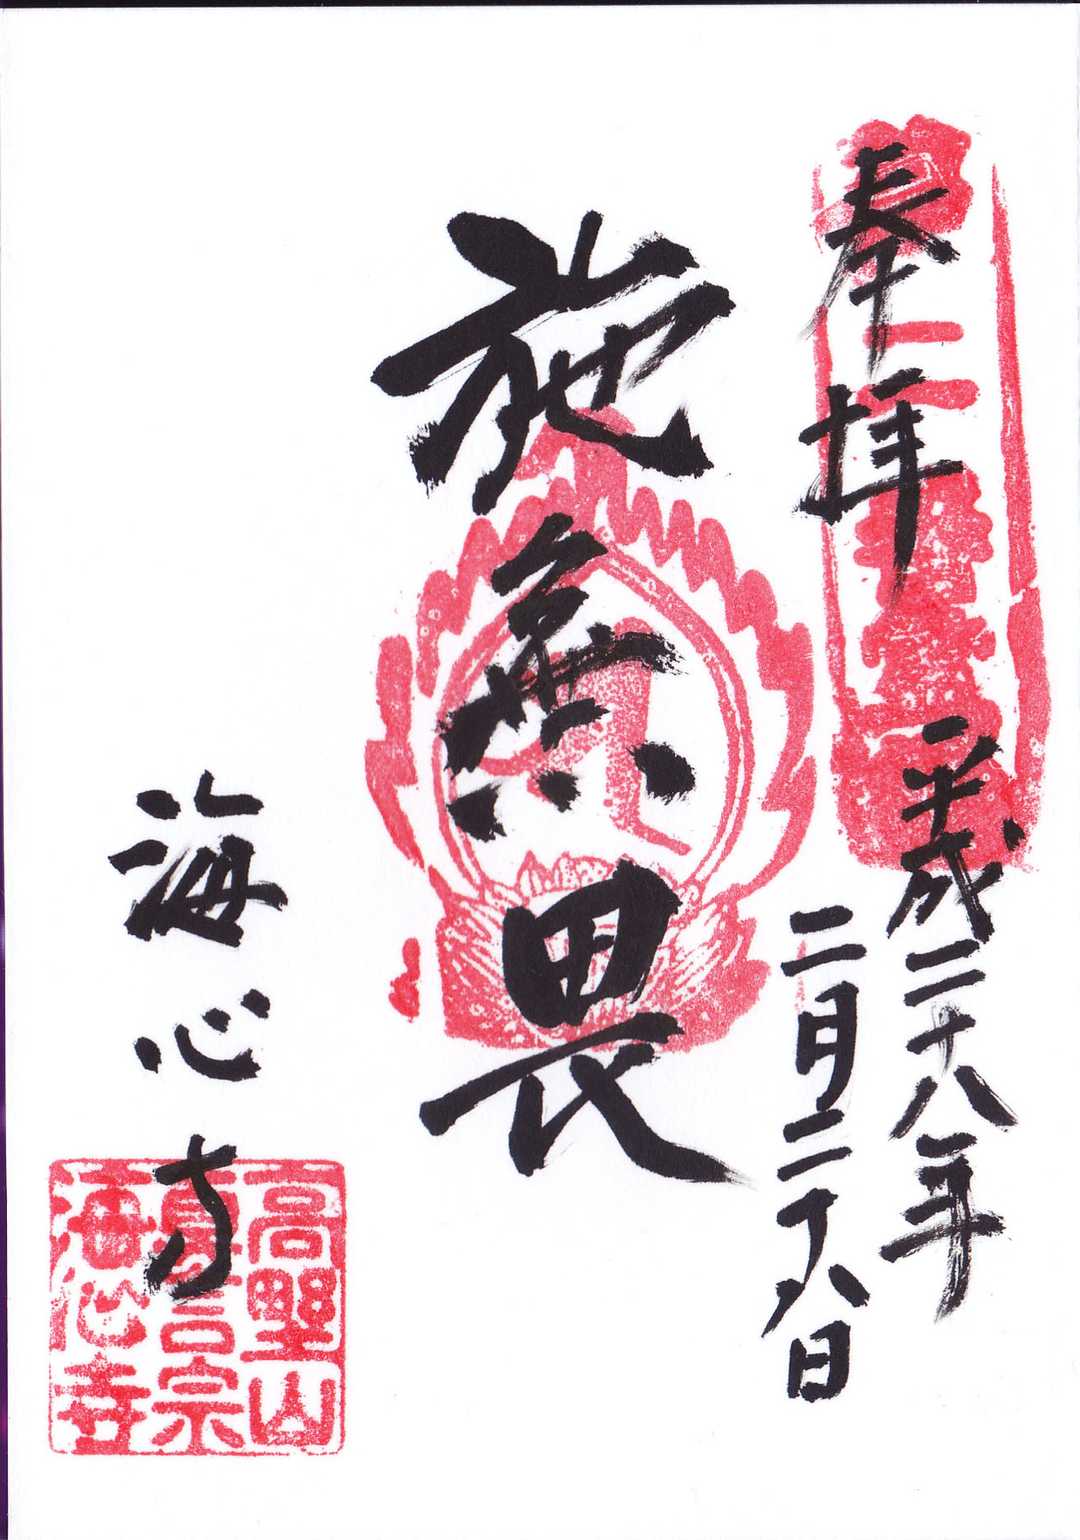 奉拝
平成二十八年
二月二十八日
施無畏
海心寺
高野山
真言宗
海心寺